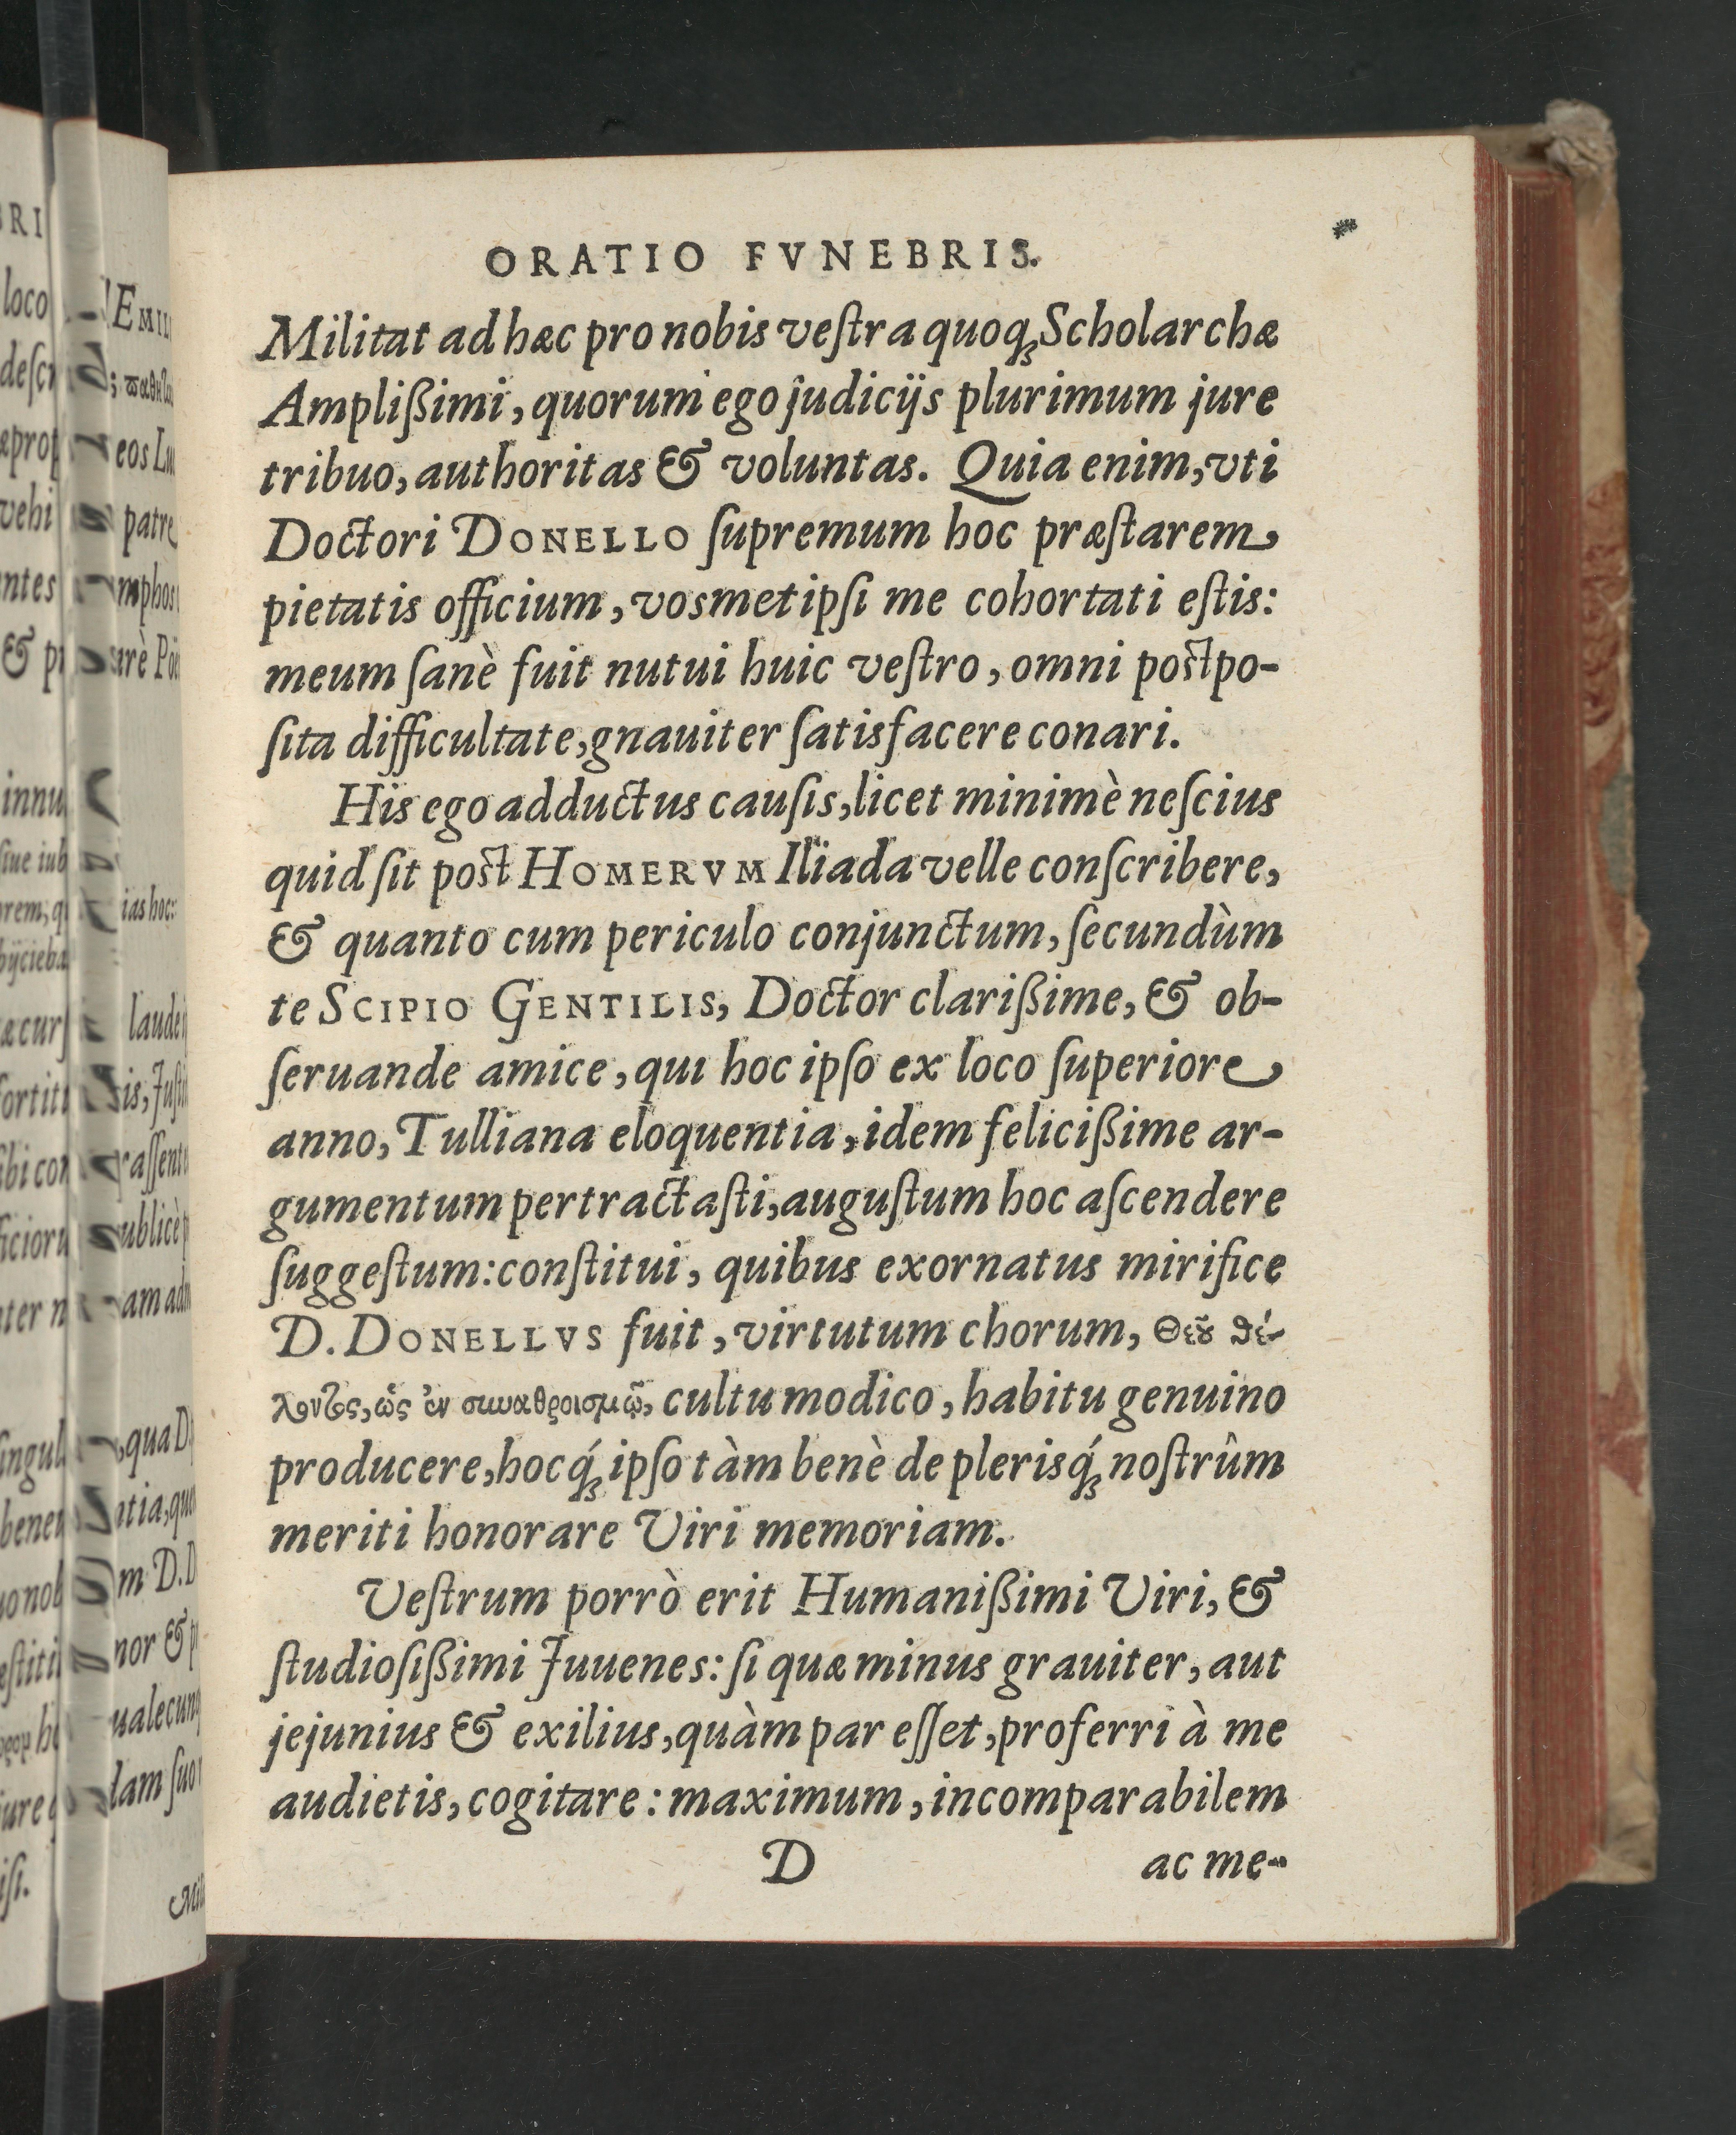 ORATIO FVNEBRIS.
Militat ad hæc pro nobis veſtra quoqꝫ Scholarchæ
Amplißimi, quorum ego judicijs plurimum jure
tribuo, authoritas & voluntas. Quia enim, vti
Doctori DONELLO ſupremum hoc præſtarem,
pietatis officium, vosmetipſi me cohortati eſtis:
meum ſanè fuit nutui huic veſtro, omni poſtpo-
ſita difficultate, gnauiter ſatisfacere conari.
His ego adductus cauſis, licet minimè neſcius
quid ſit poſt HOMERVM Iliada velle conſcribere,
& quanto cum periculo conjunctum, ſecundùm
te SCIPIO GENTILIS, Doctor clarißime, & ob-
ſeruande amice, qui hoc ipſo ex loco ſuperiore
anno, Tulliana eloquentia, idem felicißime ar-
gumentum pertractaſti, auguſtum hoc aſcendere
ſuggeſtum: conſtitui, quibus exornatus mirifice
D. DONELLVS fuit, virtutum chorum, Θεοῦ θέ-
λοντος, ὡς ἐν συναθροισμῷ, cultu modico, habitu genuino
producere, hocq́ꝫ ipſo tàm benè de plerisq́ꝫ noſtrûm
meriti honorare Viri memoriam.
Veſtrum porrò erit Humanißimi Viri, &
ſtudioſißimi Juuenes: ſi quæ minus grauiter, aut
jejunius & exilius, quàm par eſſet, proferri à me
audietis, cogitare: maximum, incomparabilem
D ac me-